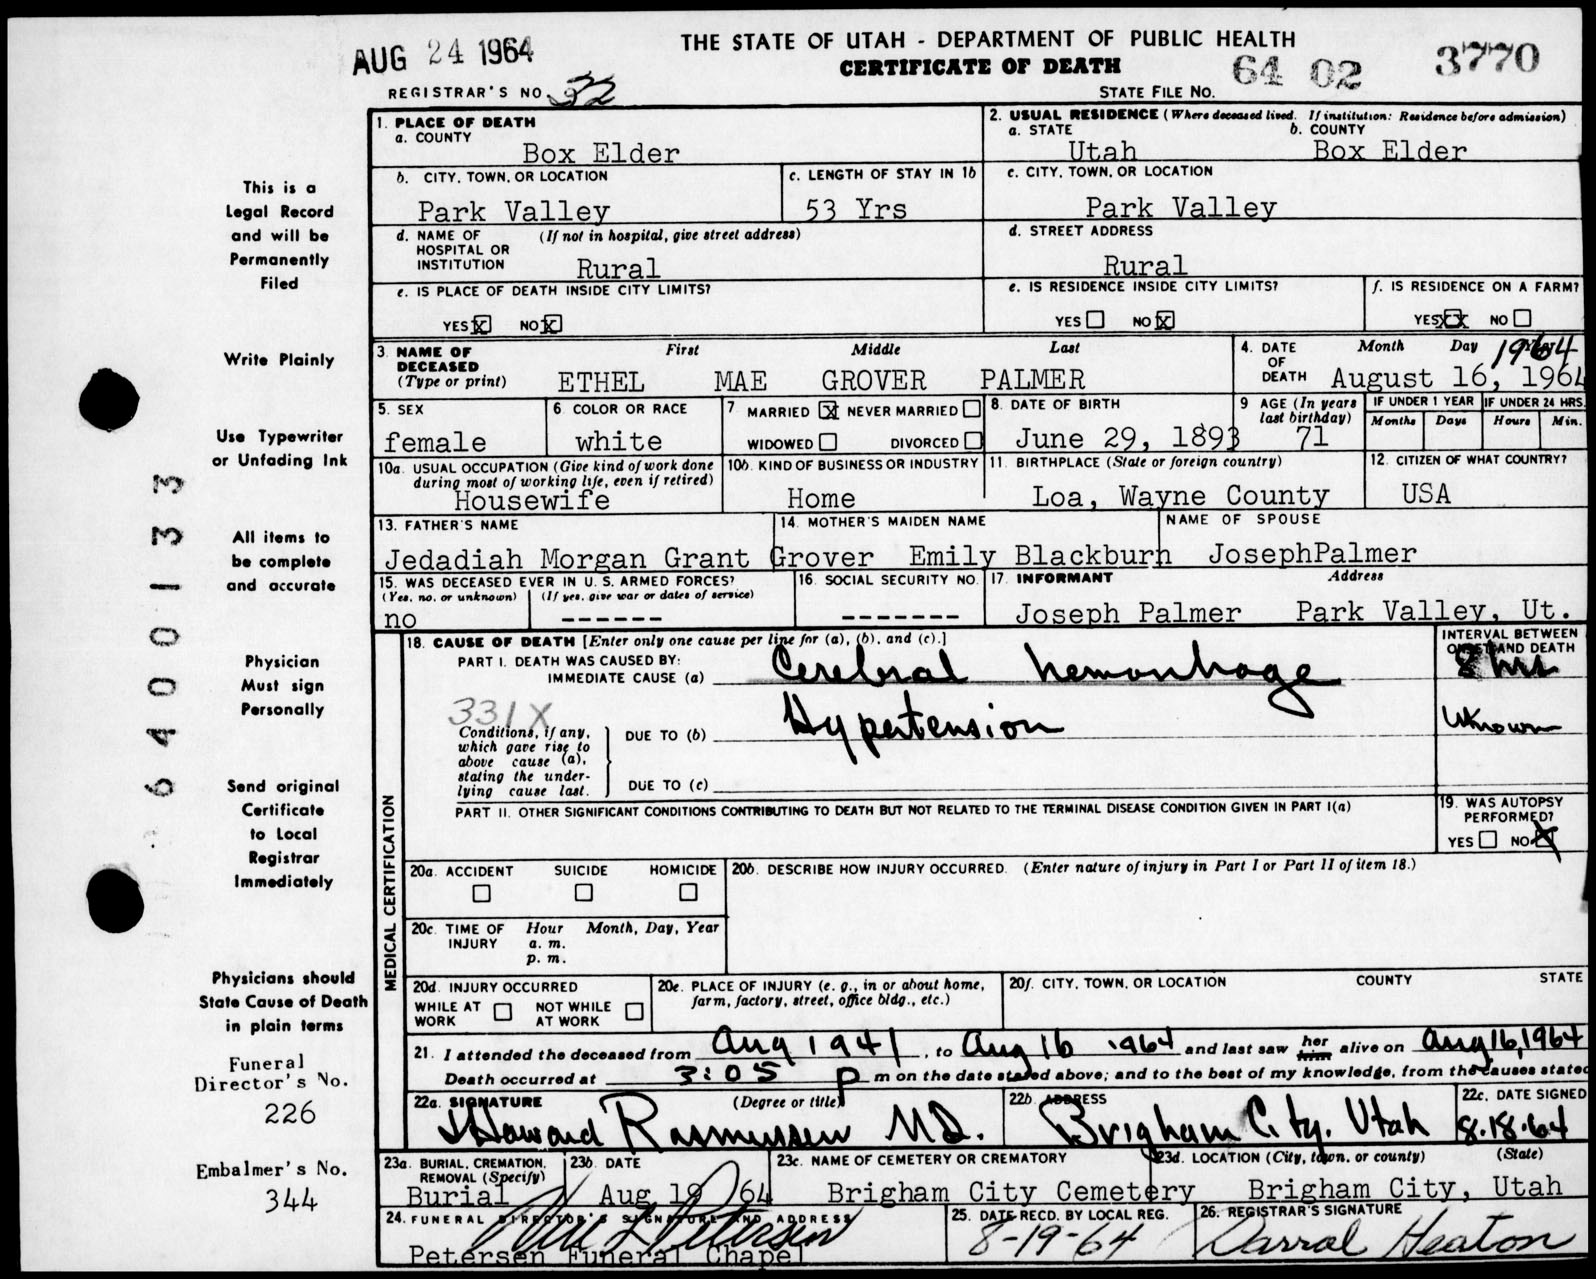 AUG 24 1964
THE STATE OF UTAH - DEPARTMENT OF PUBLIC HEALTH
CERTIFICATE OF DEATH
REGISTRAR'S NO. 32
STATE FILE NO. 64 02 3770
1. PLACE OF DEATH
a. COUNTY
Box Elder
2. USUAL RESIDENCE (Where deceased lived. If institution: Residence before admission)
a. STATE b. COUNTY
Utah Box Elder
b. CITY, TOWN, OR LOCATION
Park Valley
c. LENGTH OF STAY IN 1b
53 Yrs
c. CITY, TOWN, OR LOCATION
Park Valley
d. NAME OF (If not in hospital, give street address)
HOSPITAL OR
INSTITUTION Rural
d. STREET ADDRESS
Rural
e. IS PLACE OF DEATH INSIDE CITY LIMITS?
YES X NO X
e. IS RESIDENCE INSIDE CITY LIMITS?
YES NO X
f. IS RESIDENCE ON A FARM?
YES XX NO
3. NAME OF First Middle Last
DECEASED
(Type or print) ETHEL MAE GROVER PALMER
4. DATE Month Day 1964
OF
DEATH August 16, 1964
5. SEX
female
6. COLOR OR RACE
white
7 MARRIED X NEVER MARRIED
WIDOWED DIVORCED
8. DATE OF BIRTH
June 29, 1893
9 AGE (In years
last birthday)
71
IF UNDER 1 YEAR IF UNDER 24 HRS.
Months Days Hours Min.
10a. USUAL OCCUPATION (Give kind of work done
during most of working life, even if retired)
Housewife
10b. KIND OF BUSINESS OR INDUSTRY
Home
11. BIRTHPLACE (State or foreign country)
Loa, Wayne County
12. CITIZEN OF WHAT COUNTRY?
USA
13. FATHER'S NAME 14. MOTHER'S MAIDEN NAME NAME OF SPOUSE
Jedadiah Morgan Grant Grover Emily Blackburn JosephPalmer
15. WAS DECEASED EVER IN U. S. ARMED FORCES?
(Yes, no, or unknown) (If yes, give war or dates of service)
no ------
16. SOCIAL SECURITY NO.
-------
17. INFORMANT Address
Joseph Palmer Park Valley, Ut.
18. CAUSE OF DEATH [Enter only one cause per line for (a), (b), and (c).]
PART I. DEATH WAS CAUSED BY:
IMMEDIATE CAUSE (a) Cerebral hemorrhage
INTERVAL BETWEEN
ONSET AND DEATH
8 hrs
331X
Conditions, if any,
which gave rise to
above cause (a),
stating the under-
lying cause last.
DUE TO (b) Hypertension
Unknown
DUE TO (c)
PART II. OTHER SIGNIFICANT CONDITIONS CONTRIBUTING TO DEATH BUT NOT RELATED TO THE TERMINAL DISEASE CONDITION GIVEN IN PART I(a)
19. WAS AUTOPSY
PERFORMED?
YES NO X
MEDICAL CERTIFICATION
20a. ACCIDENT SUICIDE HOMICIDE
20b. DESCRIBE HOW INJURY OCCURRED. (Enter nature of injury in Part I or Part II of item 18.)
20c. TIME OF Hour Month, Day, Year
INJURY a. m.
p. m.
20d. INJURY OCCURRED
WHILE AT NOT WHILE
WORK AT WORK
20e. PLACE OF INJURY (e. g., in or about home,
farm, factory, street, office bldg., etc.)
20f. CITY, TOWN, OR LOCATION COUNTY STATE
21. I attended the deceased from Aug 1941, to Aug 16 1964 and last saw her him alive on Aug 16, 1964
Death occurred at 3:05 P m on the date stated above; and to the best of my knowledge, from the causes stated
22a. SIGNATURE (Degree or title)
J Howard Rasmussen M.D.
22b. ADDRESS
Brigham City, Utah
22c. DATE SIGNED
8-18-64
23a. BURIAL, CREMATION,
REMOVAL (Specify)
Burial
23b. DATE
Aug 19 64
23c. NAME OF CEMETERY OR CREMATORY
Brigham City Cemetery
23d. LOCATION (City, town, or county) (State)
Brigham City, Utah
24. FUNERAL DIRECTOR'S SIGNATURE AND ADDRESS
Petersen
Petersen Funeral Chapel
25. DATE RECD. BY LOCAL REG.
8-19-64
26. REGISTRAR'S SIGNATURE
Darral Heaton
This is a
Legal Record
and will be
Permanently
Filed
Write Plainly
Use Typewriter
or Unfading Ink
All items to
be complete
and accurate
Physician
Must sign
Personally
Send original
Certificate
to Local
Registrar
Immediately
Physicians should
State Cause of Death
in plain terms
Funeral
Director's No.
226
Embalmer's No.
344
6400133